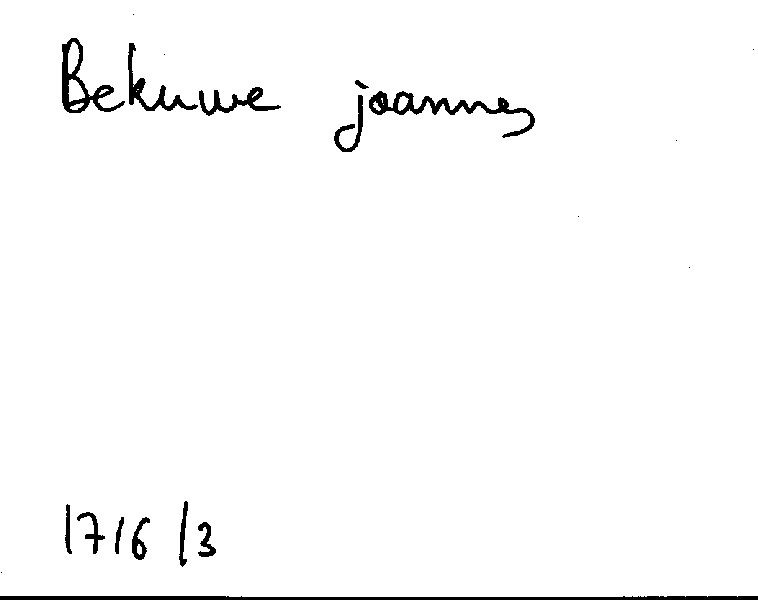 Bekuwe joannes
1716/3